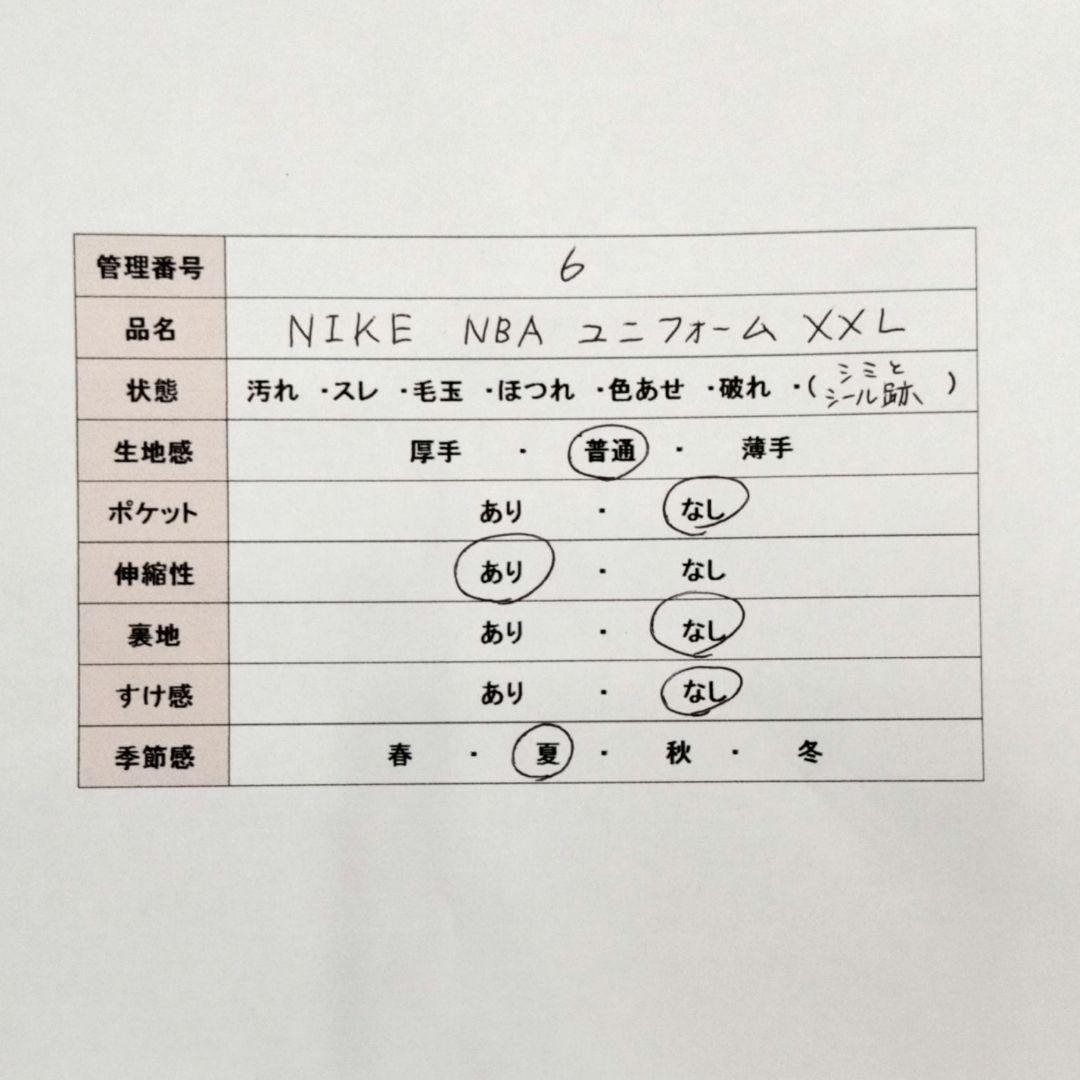 管理番号 6
品名 NIKE NBA ユニフォーム XXL
状態 汚れ ・スレ ・毛玉 ・ほつれ ・色あせ ・破れ ・(シミとシール跡)
生地感 厚手 ・ 普通 ・ 薄手
ポケット あり ・ なし
伸縮性 あり ・ なし
裏地 あり ・ なし
すけ感 あり ・ なし
季節感 春 ・ 夏 ・ 秋 ・ 冬